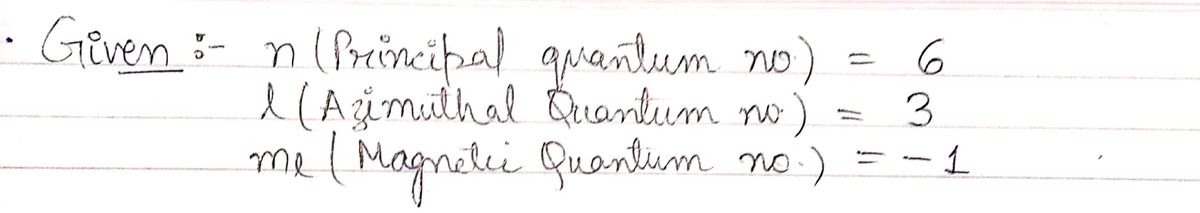 . Given :- n (Principal quantum no.) = 6
l (Azimuthal Quantum no.) = 3
ml (Magnetic Quantum no.) = -1